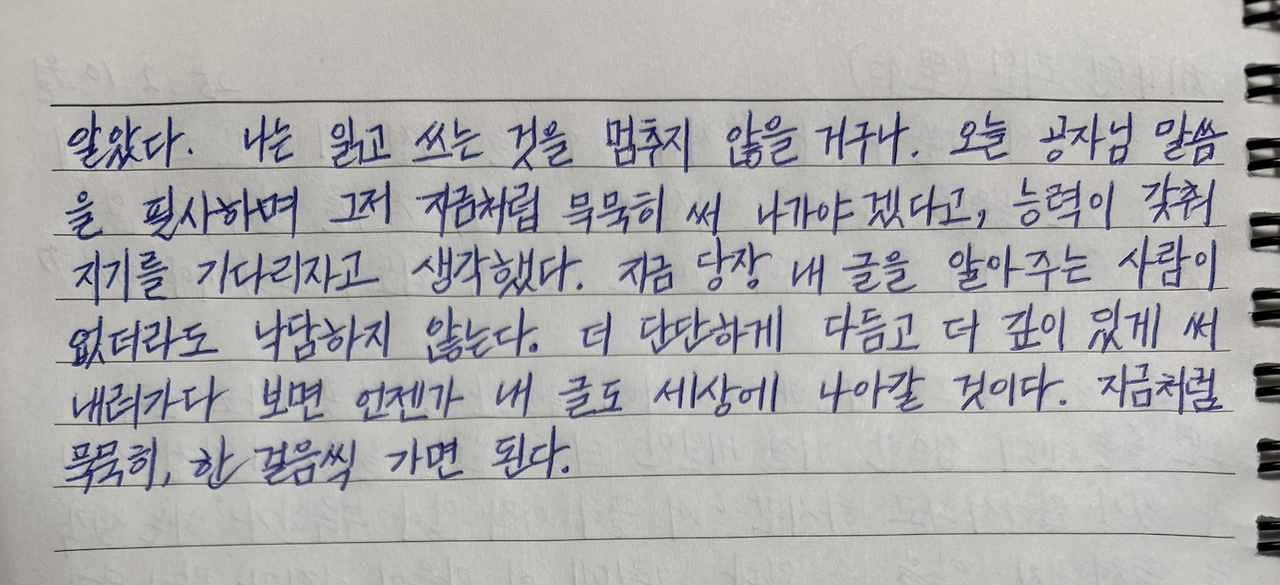 알았다. 나는 읽고 쓰는 것을 멈추지 않을 거구나. 오늘 공자님 말씀
을 필사하며 그저 지금처럼 묵묵히 써 나가야겠다고, 능력이 갖춰
지기를 기다리자고 생각했다. 지금 당장 내 글을 알아주는 사람이
없더라도 낙담하지 않는다. 더 단단하게 다듬고 더 깊이 있게 써
내려가다 보면 언젠가 내 글도 세상에 나아갈 것이다. 지금처럼
묵묵히, 한 걸음씩 가면 된다.